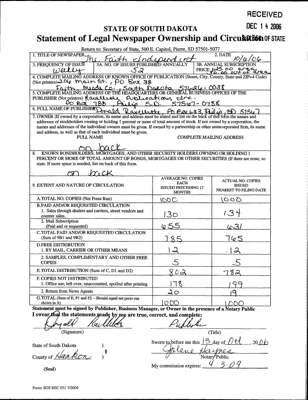 RECEIVED
DEC 14 2006
STATE OF SOUTH DAKOTA
Statement of Legal Newspaper Ownership and Circulation
OF STATE
Return to: Secretary of State, 500 E. Capitol, Pierre, SD 57501-5077
1. TITLE OF NEWSPAPER The Faith Independent
2. DATE 10/6/06
3. FREQUENCY OF ISSUE Weekly
3A. NO. OF ISSUES PUBLISHED ANNUALLY 52
3B. ANNUAL SUBSCRIPTION PRICE
4. COMPLETE MAILING ADDRESS OF KNOWN OFFICE OF PUBLICATION (Street, City, County, State and ZIP+4 Code)
(Not printers) Main St., PO Box 38
Faith, Meade Co., South Dakota 57626-0038
5. COMPLETE MAILING ADDRESS OF THE HEADQUARTERS OF GENERAL BUSINESS OFFICES OF THE
PUBLISHER Ravellette Publications, Inc.
PO Box 788 Philip S.D. 57567-0788
6. FULL NAME OF PUBLISHER: Donald Ravellette, PO Box 788, Philip, SD 57567
7. OWNER (If owned by a corporation, its name and address must be stated and also the names and
addresses of stockholders owning or holding 1 percent or more of total amount of stock. If not owned by a corporation, the
names and addresses of the individual owners must be given. If owned by a partnership or other unincorporated firm, its name
and address, as well as that of each individual must be given.
FULL NAME
COMPLETE MAILING ADDRESS
on back
8. KNOWN BONDHOLDERS, MORTGAGEES, AND OTHER SECURITY HOLDERS OWNING OR HOLDING 1
PERCENT OR MORE OF TOTAL AMOUNT OF BONDS, MORTGAGES OR OTHER SECURITIES (If there are none, so
state. If more space is needed, list on back of this form.
on back
9. EXTENT AND NATURE OF CIRCULATION
AVERAGE NO. COPIES EACH ISSUED PRECEDING 12 MONTHS
ACTUAL NO. COPIES ISSUED NEAREST TO FILING DATE
A. TOTAL NO. COPIES (Net Press Run) 1000 1000
B. PAID AND/OR REQUESTED CIRCULATION
1. Sales through dealers and carriers, street vendors and counter sales. 130 134
2. Mail Subscription (Paid and or requested) 655 631
C. TOTAL PAID AND/OR REQUESTED CIRCULATION (Sum of 9B1 and 9B2) 785 765
D. FREE DISTRIBUTION
1. BY MAIL, CARRIER OR OTHER MEANS 12 12
2. SAMPLES, COMPLIMENTARY AND OTHER FREE COPIES 5 5
E. TOTAL DISTRIBUTION (Sum of C, D1 and D2) 802 782
F. COPIES NOT DISTRIBUTED
1. Office use, left over, unaccounted, spoiled after printing 178 199
2. Return from News Agents 20 19
G. TOTAL (Sum of E, F1 and F2 - Should equal net press run shown in A) 1000 1000
Statement must be signed by Publisher, Business Manager, or Owner in the presence of a Notary Public
I swear that the statements made by me are true, correct, and complete:
Publisher
(Signature)
(Title)
State of South Dakota )
County of Haakon )
Sworn to before me this 13 day of Oct 2006
Notary Public
(Seal)
My commission expires: 4-3-09
Form: SOS REC 051 7/2004